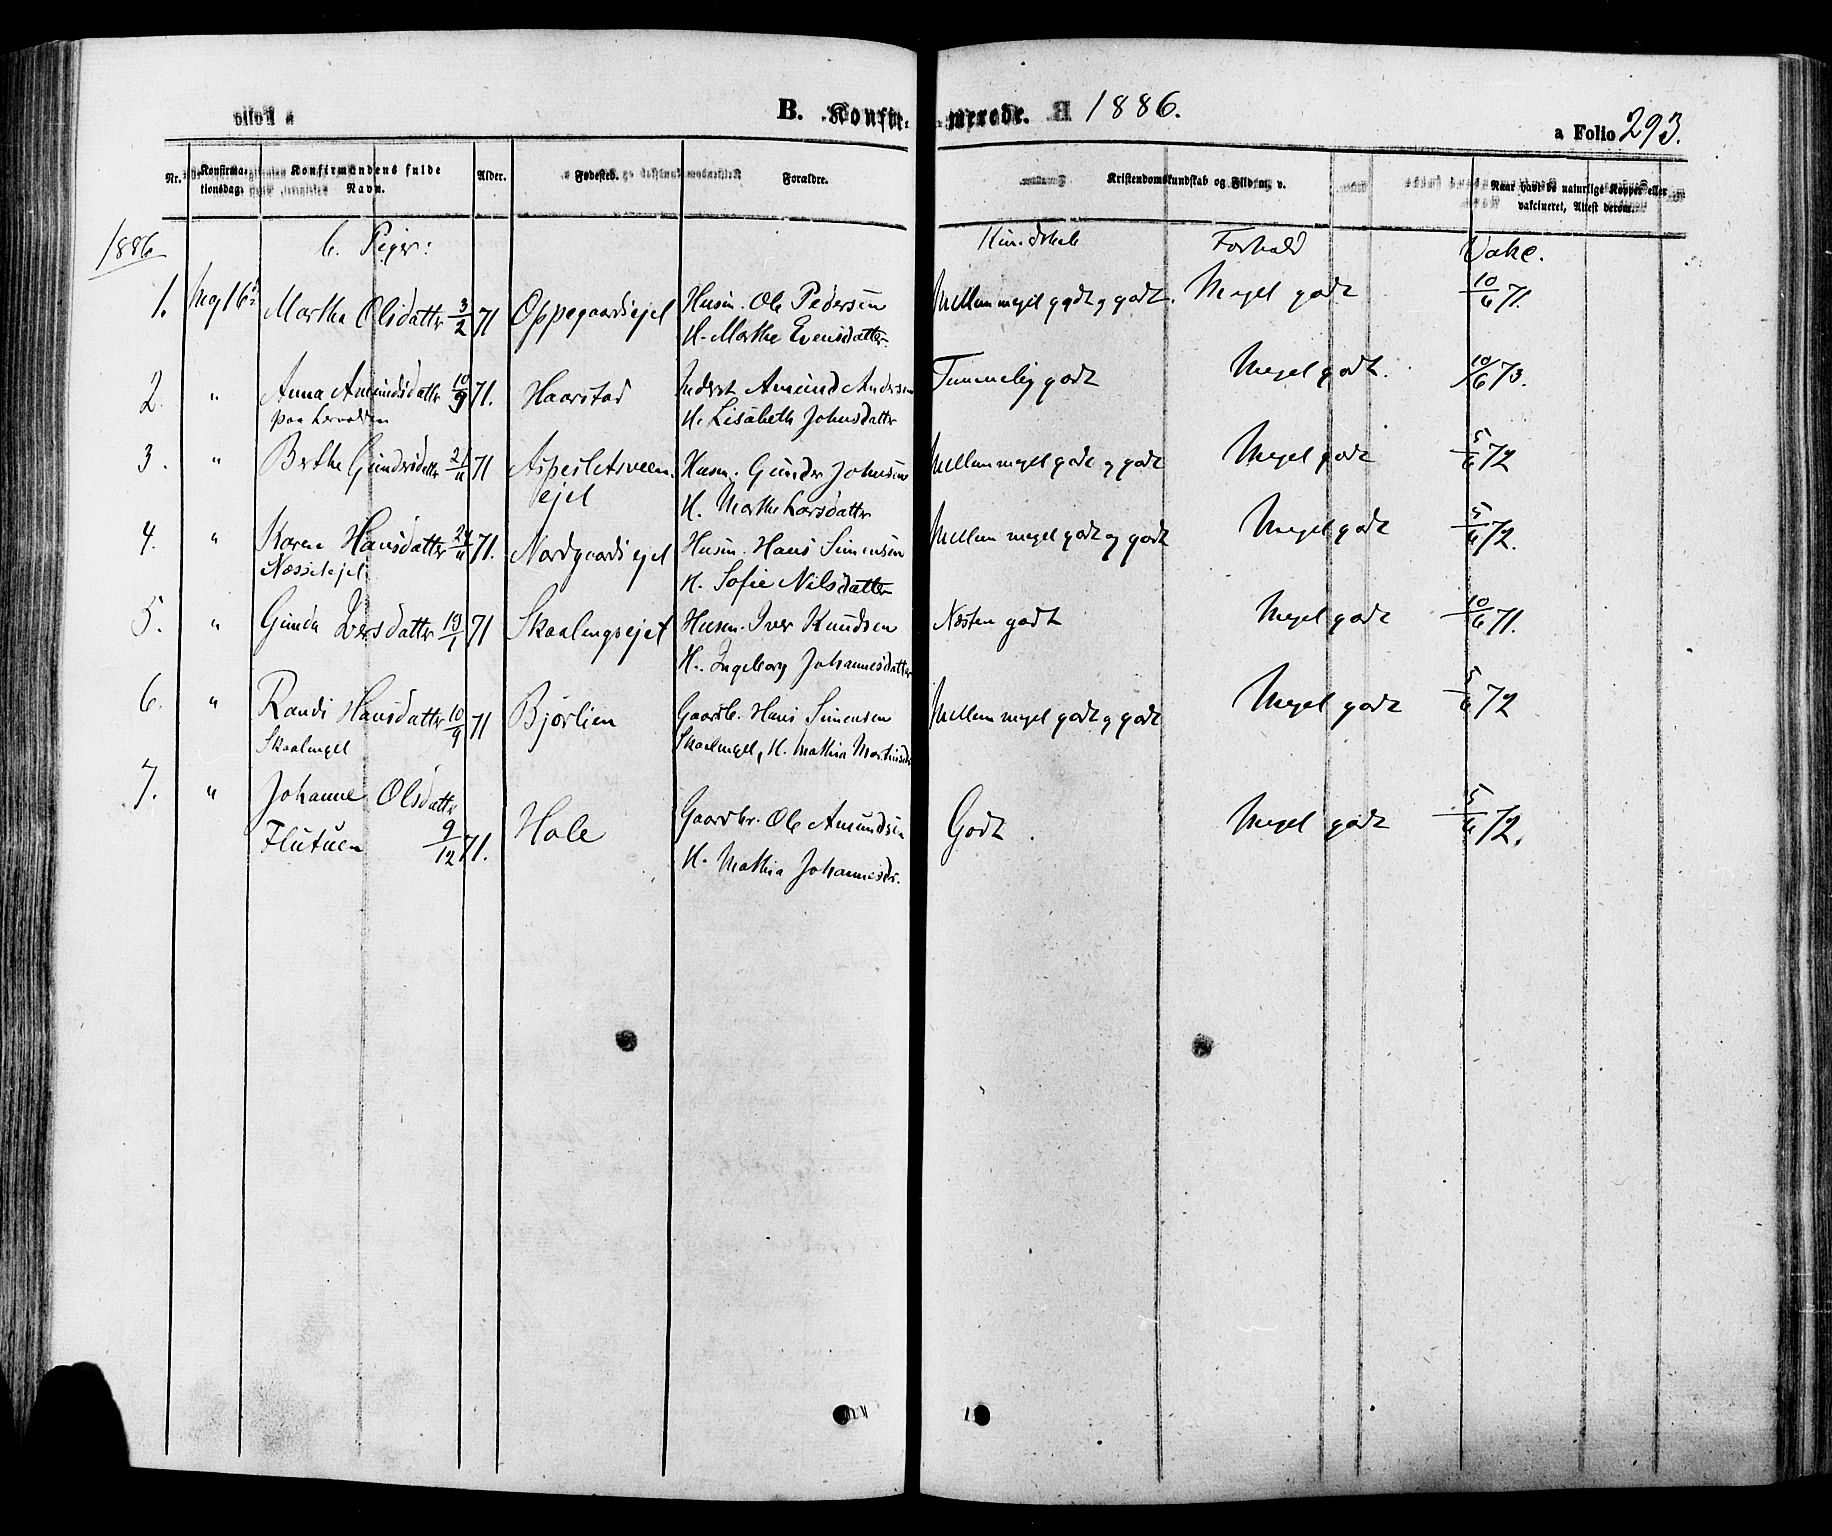 B. Konfirmerede. 1886.
a Folio 293.
Nr. Konfirmationsdag. Konfirmandens fulde Navn. Alder. Fødested. Forældre. Kristendomskundskab og Flid m. v. Naar havt de naturlige Kopper eller vakcineret, Attest derom.
1886 b. Piger: Kundskab Forhold Vakc.
1. Martha Olsdatter 3/2 71 Oppegaardsejet Husm. Ole Pedersen Mellem meget godt og godt. Meget godt 10/6 71.
H. Marthe Evensdatter
2. " Anna Amundsdatter 10/9 71. Haarstad Inderst Amund Andersen Temmelig godt Meget godt. 10/6 73.
paa H. Lisabeth Johnsdatter
3. " Berthe Gundersdatter 71 Husm. Gunder Johnsen Mellem meget godt og godt Meget godt 5/6 72
ejet H. Marthe Larsdatter
4. " Karen Hansdatter 71. Nordgaardsejet Husm. Hans Simensen Mellem meget godt og godt Meget godt 5/6 72.
H. Sofie Nilsdatter
5. " Gunda Iversdatter 19/1 71 Skaalengsejet Husm. Iver Knudsen Næsten godt Meget godt 10/6 71.
H. Ingeborg Johannesdatter
6. " Randi Hansdatter 10/9 71 Bjørlien Gaardbr. Hans Simensen Mellem meget godt og godt Meget godt 5/6 72
Skaalenget Skaalenget, H. Mathia
7. " Johanne Olsdatter
Flutuen 9/12 71. Hole Gaardbr. Ole Amundsen Godt. Meget godt 5/6 72.
H. Mathia Johannesdr.